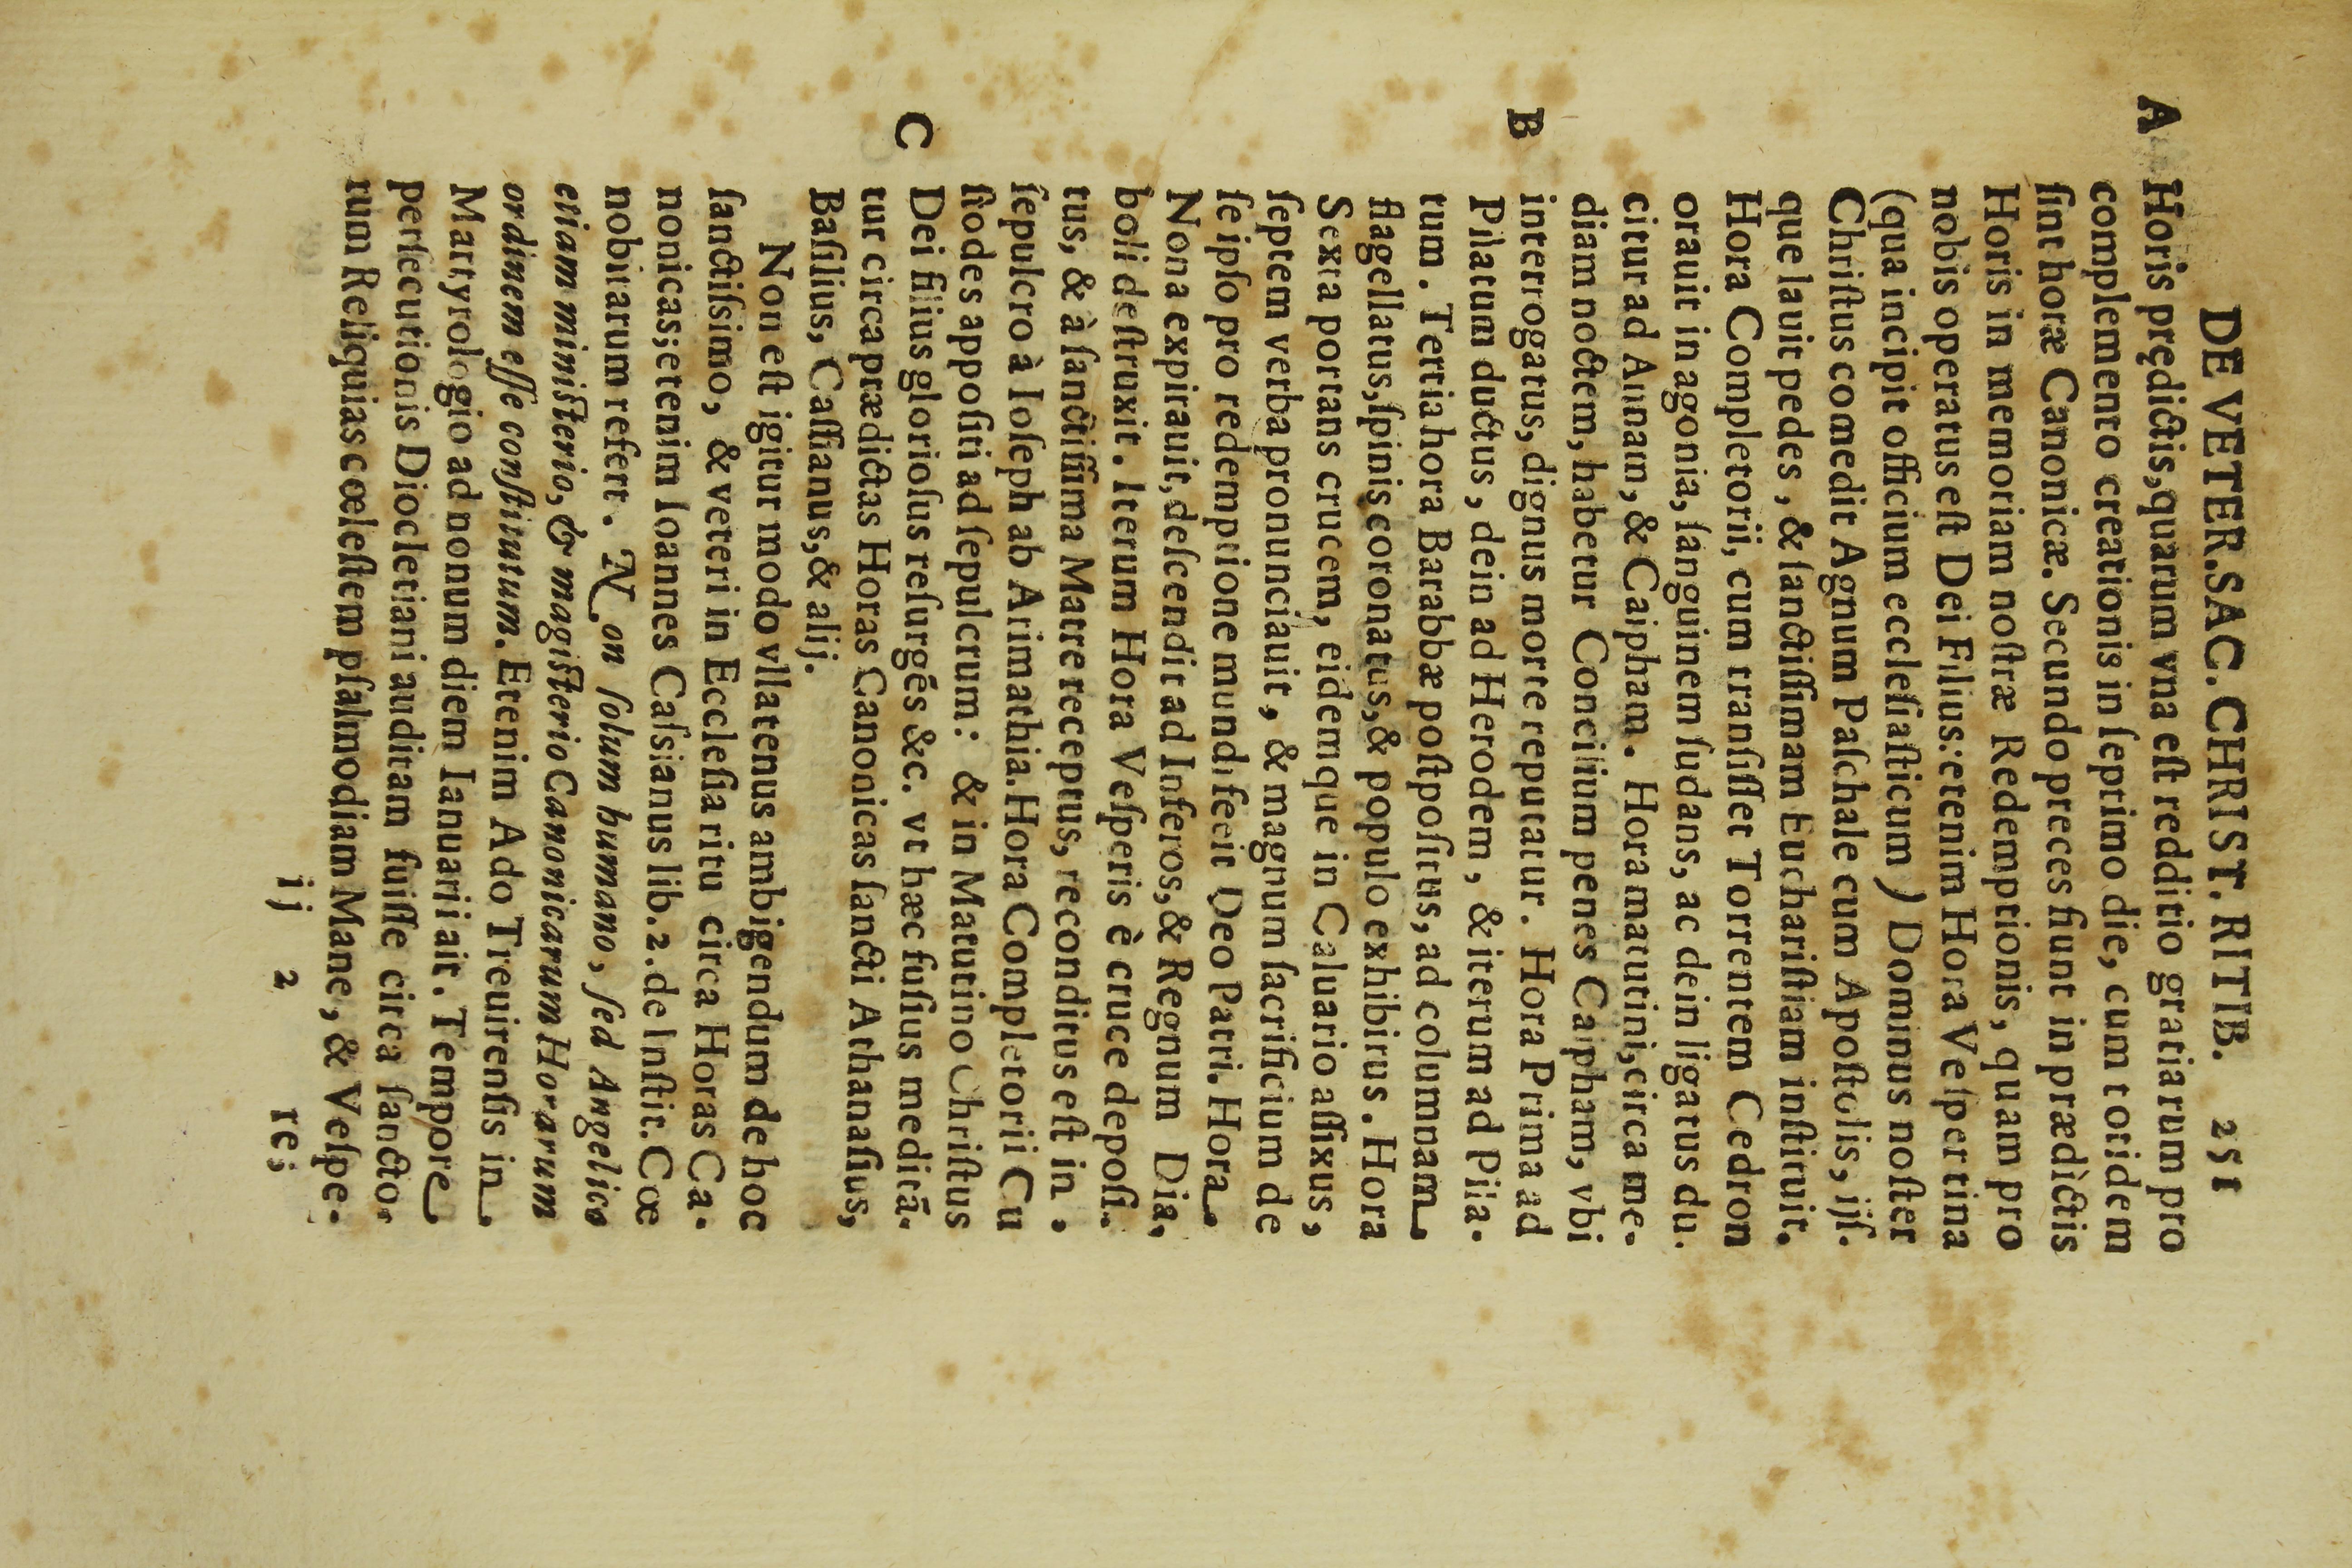 DE VETER. SAC. CHRIST. RITIB. 251
A Horis prędictis, quarum vna est redditio gratiarum pro
complemento creationis in septimo die, cum totidem
sint horæ Canonicæ. Secundo preces fiunt in prædictis
Horis in memoriam nostræ Redemptionis, quam pro
nobis operatus est Dei Filius: etenim Hora Vespertina
(qua incipit officium ecclesiasticum) Dominus noster
Christus comedit Agnum Paschale cum Apostolis, ijs-
que lauit pedes, & sanctissimam Eucharistiam instituit.
Hora Completorii, cum transisset Torrentem Cedron
orauit in agonia, sanguinem sudans, ac dein ligatus du-
citur ad Annam, & Caipham. Hora matutini, circa me-
diam noctem, habetur Concilium penes Caipham, vbi
B interrogatus, dignus morte reputatur. Hora Prima ad
Pilatum ductus, dein ad Herodem, & iterum ad Pila-
tum. Tertia hora Barabbæ postpositus, ad columnam
flagellatus, spinis coronatus, & populo exhibitus. Hora
Sexta portans crucem, eidemque in Caluario affixus,
septem verba pronunciauit, & magnum sacrificium de
se ipso pro redemptione mundi fecit Deo Patri. Hora
Nona expirauit, descendit ad Inferos, & Regnum Dia-
boli destruxit. Iterum Hora Vesperis è cruce deposi-
tus, & à sanctissima Matre receptus, reconditus est in
sepulcro à Ioseph ab Arimathia. Hora Completorii Cu
stodes appositi ad sepulcrum: & in Matutino Christus
C Dei filius gloriosus resurgẽs &c. vt hæc fusius meditã-
tur circa prædictas Horas Canonicas sancti Athanasius,
Basilius, Cassianus, & alij.
Non est igitur modo vllatenus ambigendum de hoc
sanctissimo, & veteri in Ecclesia ritu circa Horas Ca-
nonicas; etenim Ioannes Cassianus lib. 2. de Instit. Cœ
nobitarum refert. Non solum humano, sed Angelico
etiam ministerio, & magisterio Canonicarum Horarum
ordinem esse constitutum. Etenim Ado Treuirensis in
Martyrologio ad nonum diem Ianuarii ait. Tempore
persecutionis Diocletiani auditam fuisse circa sancto-
rum Reliquias cœlestem psalmodiam Mane, & Vespe-
ij 2 re;